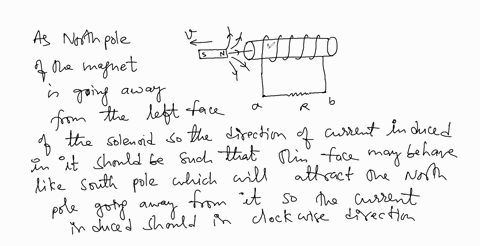 As North pole
of the magnet
is going away
from the left face
of the solenoid so the direction of current induced
in it should be such that this face may behave
like south pole which will attract the North
pole going away from it so the current
induced should in clockwise direction
v
S N
a R b